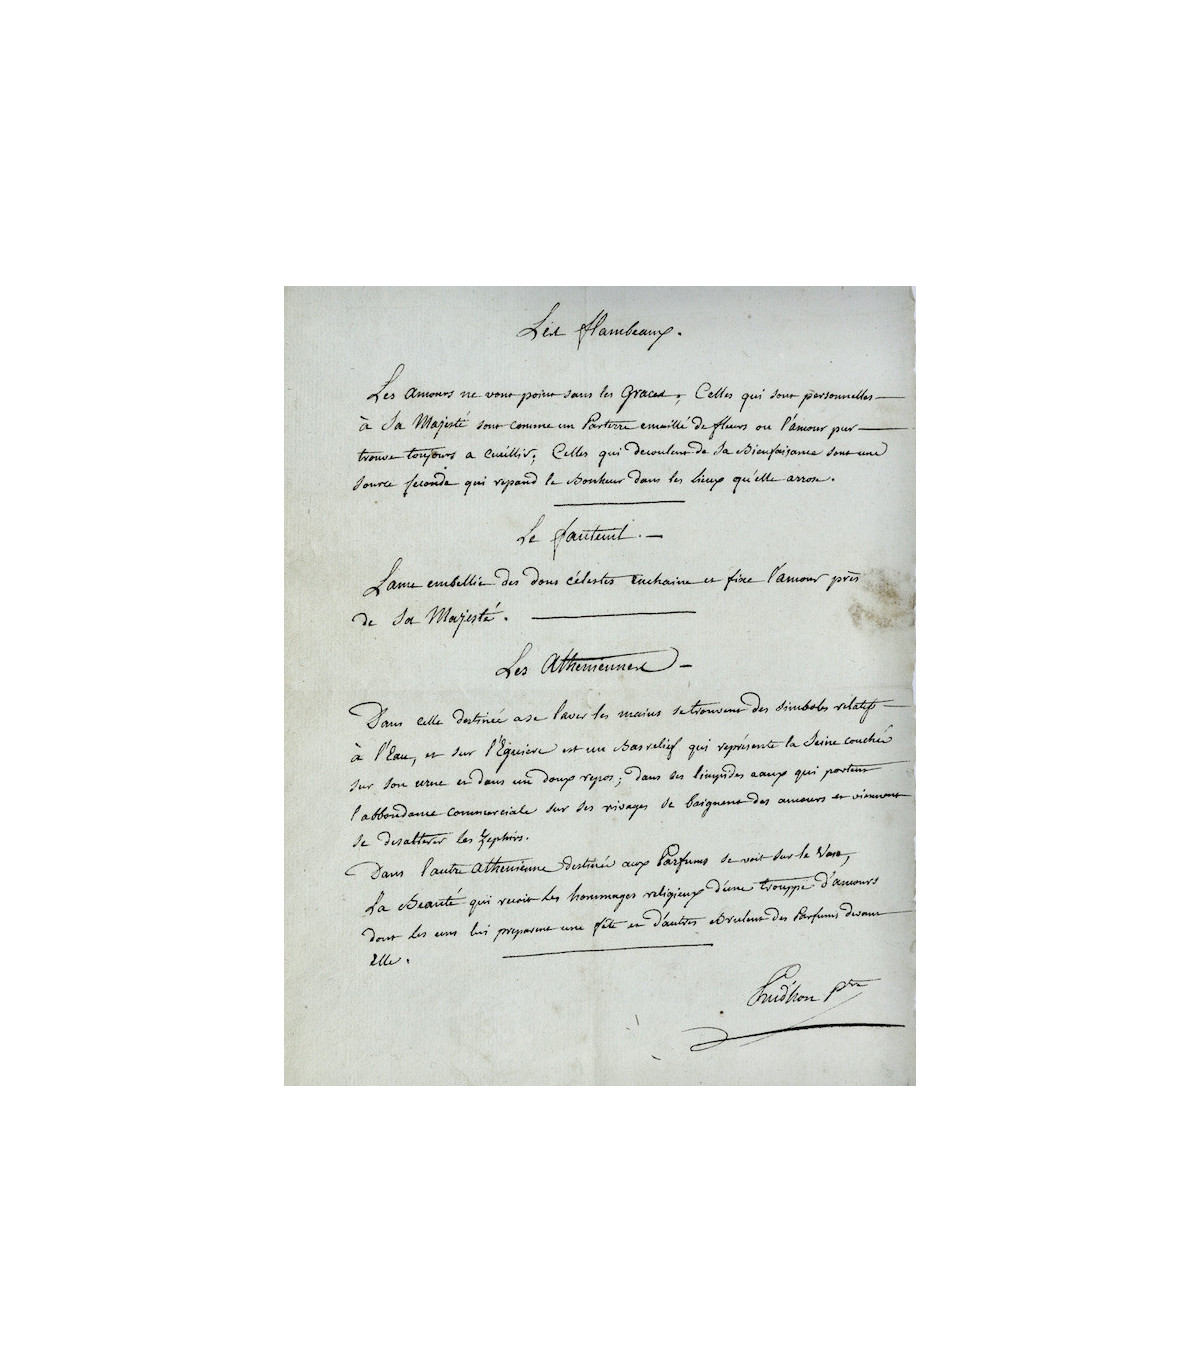 Les flambeaux.
Les amours ne vont point sans les Graces; Celles qui sont personnelles
à Sa Majesté sont comme un Parterre emaillé de fleurs ou l'amour pur
trouve toujours a cuëillir; Celles qui decoulent de Sa Bienfaisance sont une
source feconde qui repand le Bonheur dans les lieux qu'elle arrose.
Le fauteuil.
L'ame embellie des dons célestes enchaine et fixe l'amour près
de Sa Majesté.
Les Atheniennes
Dans celle destinée a se laver les mains se trouvent des simboles relatifs
à l'Eau, et sur l'Eguiere est un Basrelief qui représente la Seine couchée
sur son urne et dans un doux repos; dans ses limpides eaux qui portent
l'abbondance commerciale sur ses rivages se baignent des amours et viennent
se desalterer les Zephirs.
Dans l'autre Athenienne destinée aux Parfums se voit sur le Vase,
La Beauté qui recoit les hommages religieux d'une trouppe d'amours
dont les uns lui preparent une fête et d'autres Brulent des Parfums devant
Elle.
Prud'hon p.tre